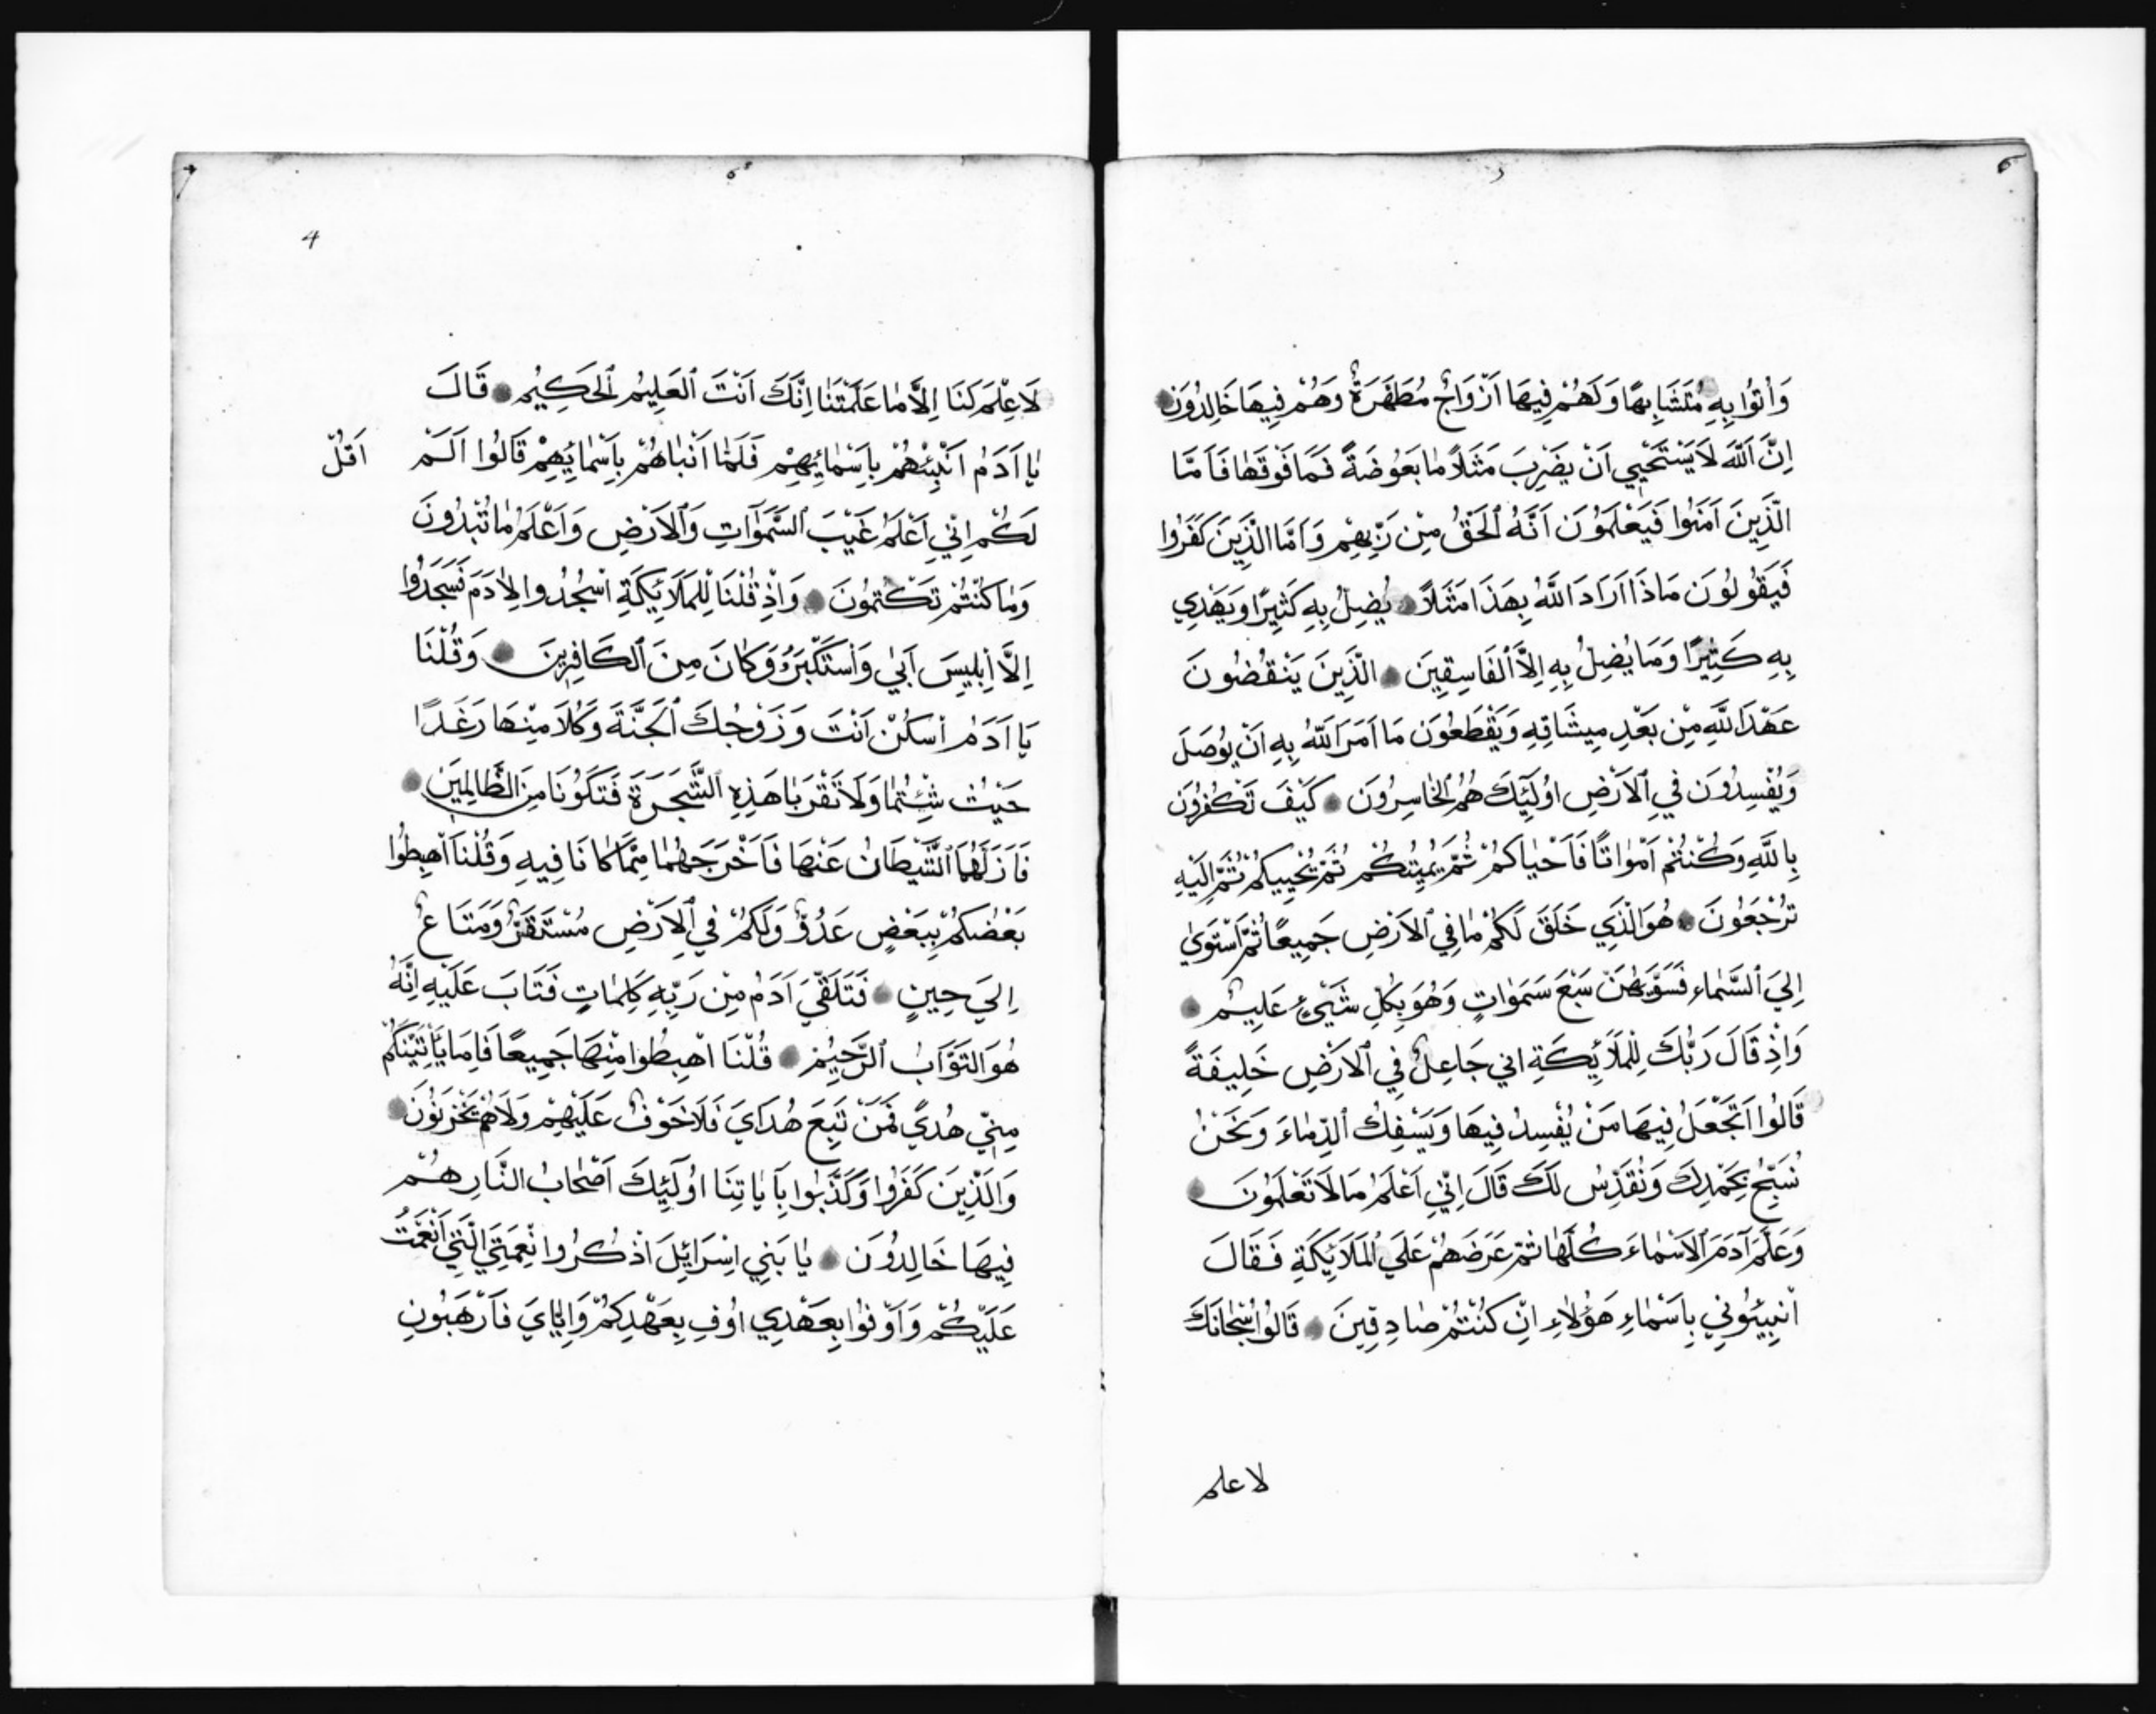 وَاُتُوا بِهِ مُتَشَابِهًا وَلَهُمْ فِيهَا اَزْوَاجٌ مُطَهَّرَةٌ وَهُمْ فِيهَا خَالِدُونَ
اِنَّ اللَّهَ لَا يَسْتَحْيِي اَنْ يَضْرِبَ مَثَلًا مَا بَعُوضَةً فَمَا فَوْقَهَا فَاَمَّا
الَّذِينَ اَمَنُوا فَيَعْلَمُونَ اَنَّهُ الْحَقُّ مِنْ رَبِّهِمْ وَاَمَّا الَّذِينَ كَفَرُوا
فَيَقُولُونَ مَاذَا اَرَادَ اللَّهُ بِهَذَا مَثَلًا يُضِلُّ بِهِ كَثِيرًا وَيَهْدِي
بِهِ كَثِيرًا وَمَا يُضِلُّ بِهِ اِلَّا الْفَاسِقِينَ الَّذِينَ يَنْقُضُونَ
عَهْدَ اللَّهِ مِنْ بَعْدِ مِيثَاقِهِ وَيَقْطَعُونَ مَا اَمَرَ اللَّهُ بِهِ اَنْ يُوصَلَ
وَيُفْسِدُونَ فِي الْاَرْضِ اُولَئِكَ هُمُ الْخَاسِرُونَ كَيْفَ تَكْفُرُونَ
بِاللَّهِ وَكُنْتُمْ اَمْوَاتًا فَاَحْيَاكُمْ ثُمَّ يُمِيتُكُمْ ثُمَّ يُحْيِيكُمْ ثُمَّ اِلَيْهِ
تُرْجَعُونَ هُوَ الَّذِي خَلَقَ لَكُمْ مَا فِي الْاَرْضِ جَمِيعًا ثُمَّ اسْتَوَى
اِلَيَ السَّمَاءِ فَسَوَّيهُنَّ سَبْعَ سَمَوَاتٍ وَهُوَ بِكُلِّ شَيْءٍ عَلِيمٌ
وَاِذْ قَالَ رَبُّكَ لِلْمَلَائِكَةِ اني جَاعِلٌ فِي الْاَرْضِ خَلِيفَةً
قَالُوا اَتَجْعَلُ فِيهَا مَنْ يُفْسِدُ فِيهَا وَيَسْفِكُ الدِّمَاءَ وَنَحْنُ
نُسَبِّحُ بِحَمْدِكَ وَنُقَدِّسُ لَكَ قَالَ اِنِّي اَعْلَمُ مَا لَا تَعْلَمُونَ
وَعَلَّمَ آدَمَ الْاَسْمَاءَ كُلَّهَا ثُمَّ عَرَضَهُمْ عَلَي الْمَلَائِكَةِ فَقَالَ
اَنْبِيئُونِي بِاَسْمَاءِ هَؤُلَاءِ اِنْ كُنْتُمْ صَادِقِينَ قَالُوا سُبْحَانَكَ
لا علم
4
لَا عِلْمَ لَنَا اِلَّا مَا عَلَّمْتَنَا اِنَّكَ اَنْتَ الْعَلِيمُ الْحَكِيمُ قَالَ
يَا اَدَمُ اَنْبِئْهُمْ بِاَسْمَائِهِمْ فَلَمَّا اَنْبَاهُمْ بِاَسْمَائِهِمْ قَالُوا اَلَمْ اَقُلْ
لَكُمْ اِنِّي اَعْلَمُ غَيْبَ السَّمَوَاتِ وَالْاَرْضِ وَاَعْلَمُ مَا تُبْدُونَ
وَمَا كُنْتُمْ تَكْتُمُونَ وَاِذْ قُلْنَا لِلْمَلَائِكَةِ اسْجُدُوا لِاٰدَمَ فَسَجَدُوا
اِلَّا اِبْلِيسَ اَبَي وَاسْتَكْبَرَ وَكَانَ مِنَ الْكَافِرِينَ وَقُلْنَا
يَا اَدَمُ اسْكُنْ اَنْتَ وَزَوْجُكَ الْجَنَّةَ وَكُلَا مِنْهَا رَغَدًا
حَيْثُ شِئْتُمَا وَلَا تَقْرَبَا هَذِهِ الشَّجَرَةَ فَتَكُونَا مِنَ الظَّالِمِينَ
فَاَزَلَّهُمَا الشَّيْطَانُ عَنْهَا فَاَخْرَجَهُمَا مِمَّا كَانَا فِيهِ وَقُلْنَا اهْبِطُوا
بَعْضُكُمْ بِبَعْضٍ عَدُوٌّ وَلَكُمْ فِي الْاَرْضِ مُسْتَقَرٌّ وَمَتَاعٌ
اِلَيَ حِينٍ فَتَلَقَّيَ اَدَمُ مِنْ رَبِّهِ كَلِمَاتٍ فَتَابَ عَلَيْهِ اِنَّهُ
هُوَ التَّوَّابُ الرَّحِيمُ قُلْنَا اهْبِطُوا مِنْهَا جَمِيعًا فَاِمَا يَاْتِيَنَّكُمْ
مِنِّي هُدًي فَمَنْ تَبِعَ هُدَايَ فَلَا خَوْفٌ عَلَيْهِمْ وَلَا هُمْ يَحْزَنُونَ
وَالَّذِينَ كَفَرُوا وَكَذَّبُوا بِاَيَاتِنَا اُولَئِكَ اَصْحَابُ النَّارِ هُمْ
فِيهَا خَالِدُونَ يَا بَنِي اِسْرَائِلَ اذْكُرُوا نِعْمَتِيَ الَّتِي اَنْعَمْتُ
عَلَيْكُمْ وَاَوْفُوا بِعَهْدِي اُوفِ بِعَهْدِكُمْ وَاِيَّايَ فَارْهَبُونِ